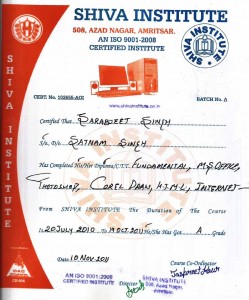 SHIVA INSTITUTE
508, AZAD NAGAR, AMRITSAR.
AN ISO 9001-2008
CERTIFIED INSTITUTE
SHIVA INSTITUTE
SHIVA INSTITUTE
CERT. No.
BATCH No. A
www.shivainstitute.co.in
Certified That Sarabjeet Singh
S/o, D/o Satnam Singh
Has Completed His/Her Diploma/C.T.T. Fundamental, M.S. Office,
Photoshop, Corel Draw, H.T.M.L, Internet
From SHIVA INSTITUTE The Duration of the Course
is 20 July 2010 To 19 Oct 2011 He/She Has Got A Grade
Date: 10 Nov 2011
Course Co-Ordinator
AN ISO 9001-2008
CERTIFIED INSTITUTE
Director
SHIVA INSTITUTE
508, Azad Nagar,
Amritsar.